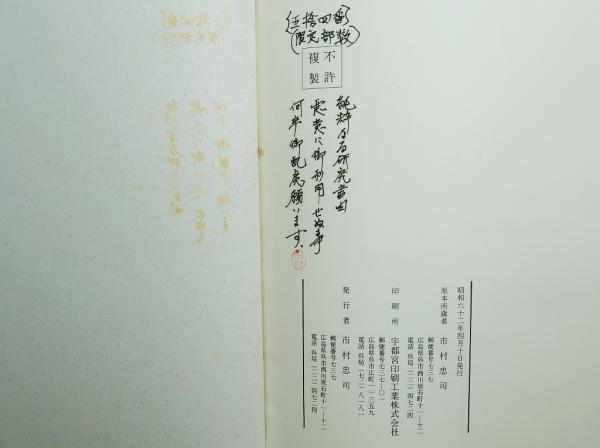 限定部数
五拾四番
不許
複製
純粋なる研究書由
悪意に御利用せぬ事
何卒御配慮願います。
昭和六十二年四月十日発行
原本所蔵者 市村忠司
郵便番号七三七
広島県呉市西川原石町十一ノ十二
電話 呉局(二二)四七二四
印刷所 宇都宮印刷工業株式会社
郵便番号七三七ー〇一
広島県呉市広町一一三五九
電話 呉局(七二)八一八一
発行者 市村忠司
郵便番号七三七
広島県呉市西川原石町十一ノ十二
電話 呉局(二二)四七二四